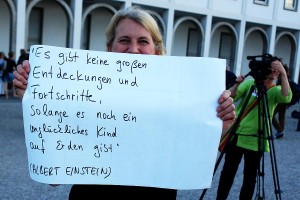 "Es gibt keine großen
Entdeckungen und
Fortschritte,
solange es noch ein
unglückliches Kind
auf Erden gibt"
(ALBERT EINSTEIN)